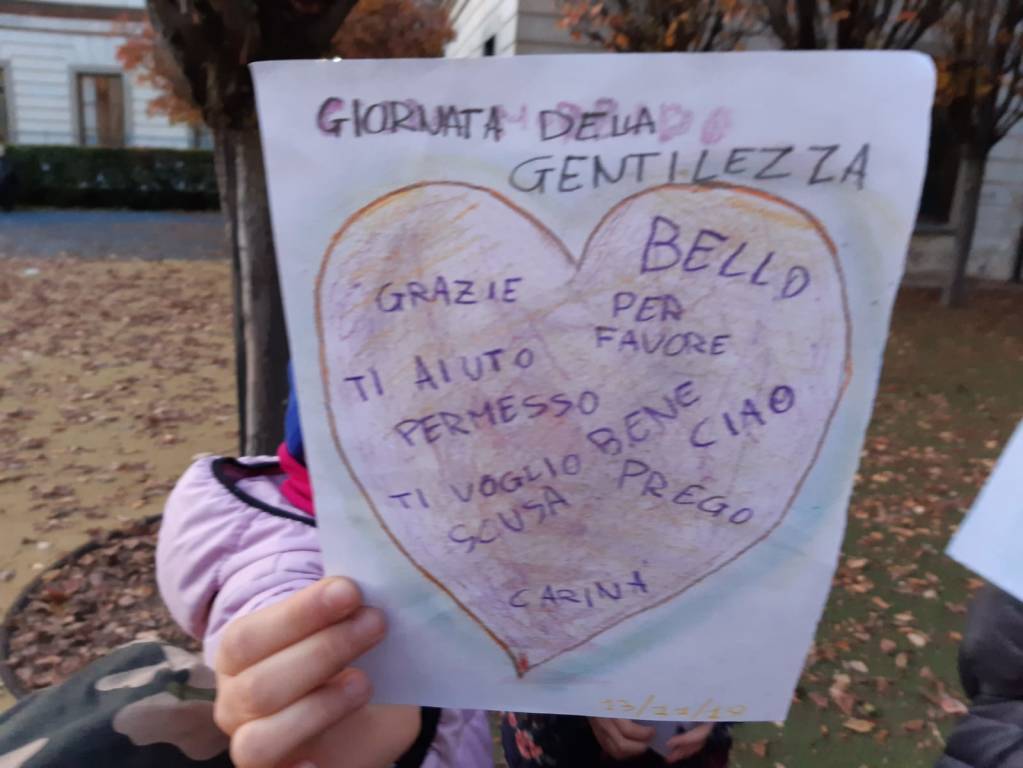 GIORNATA DELLA
GENTILEZZA
BELLO
GRAZIE
PER
FAVORE
TI AIUTO
PERMESSO
TI VOGLIO BENE
CIAO
SCUSA
PREGO
CARINA